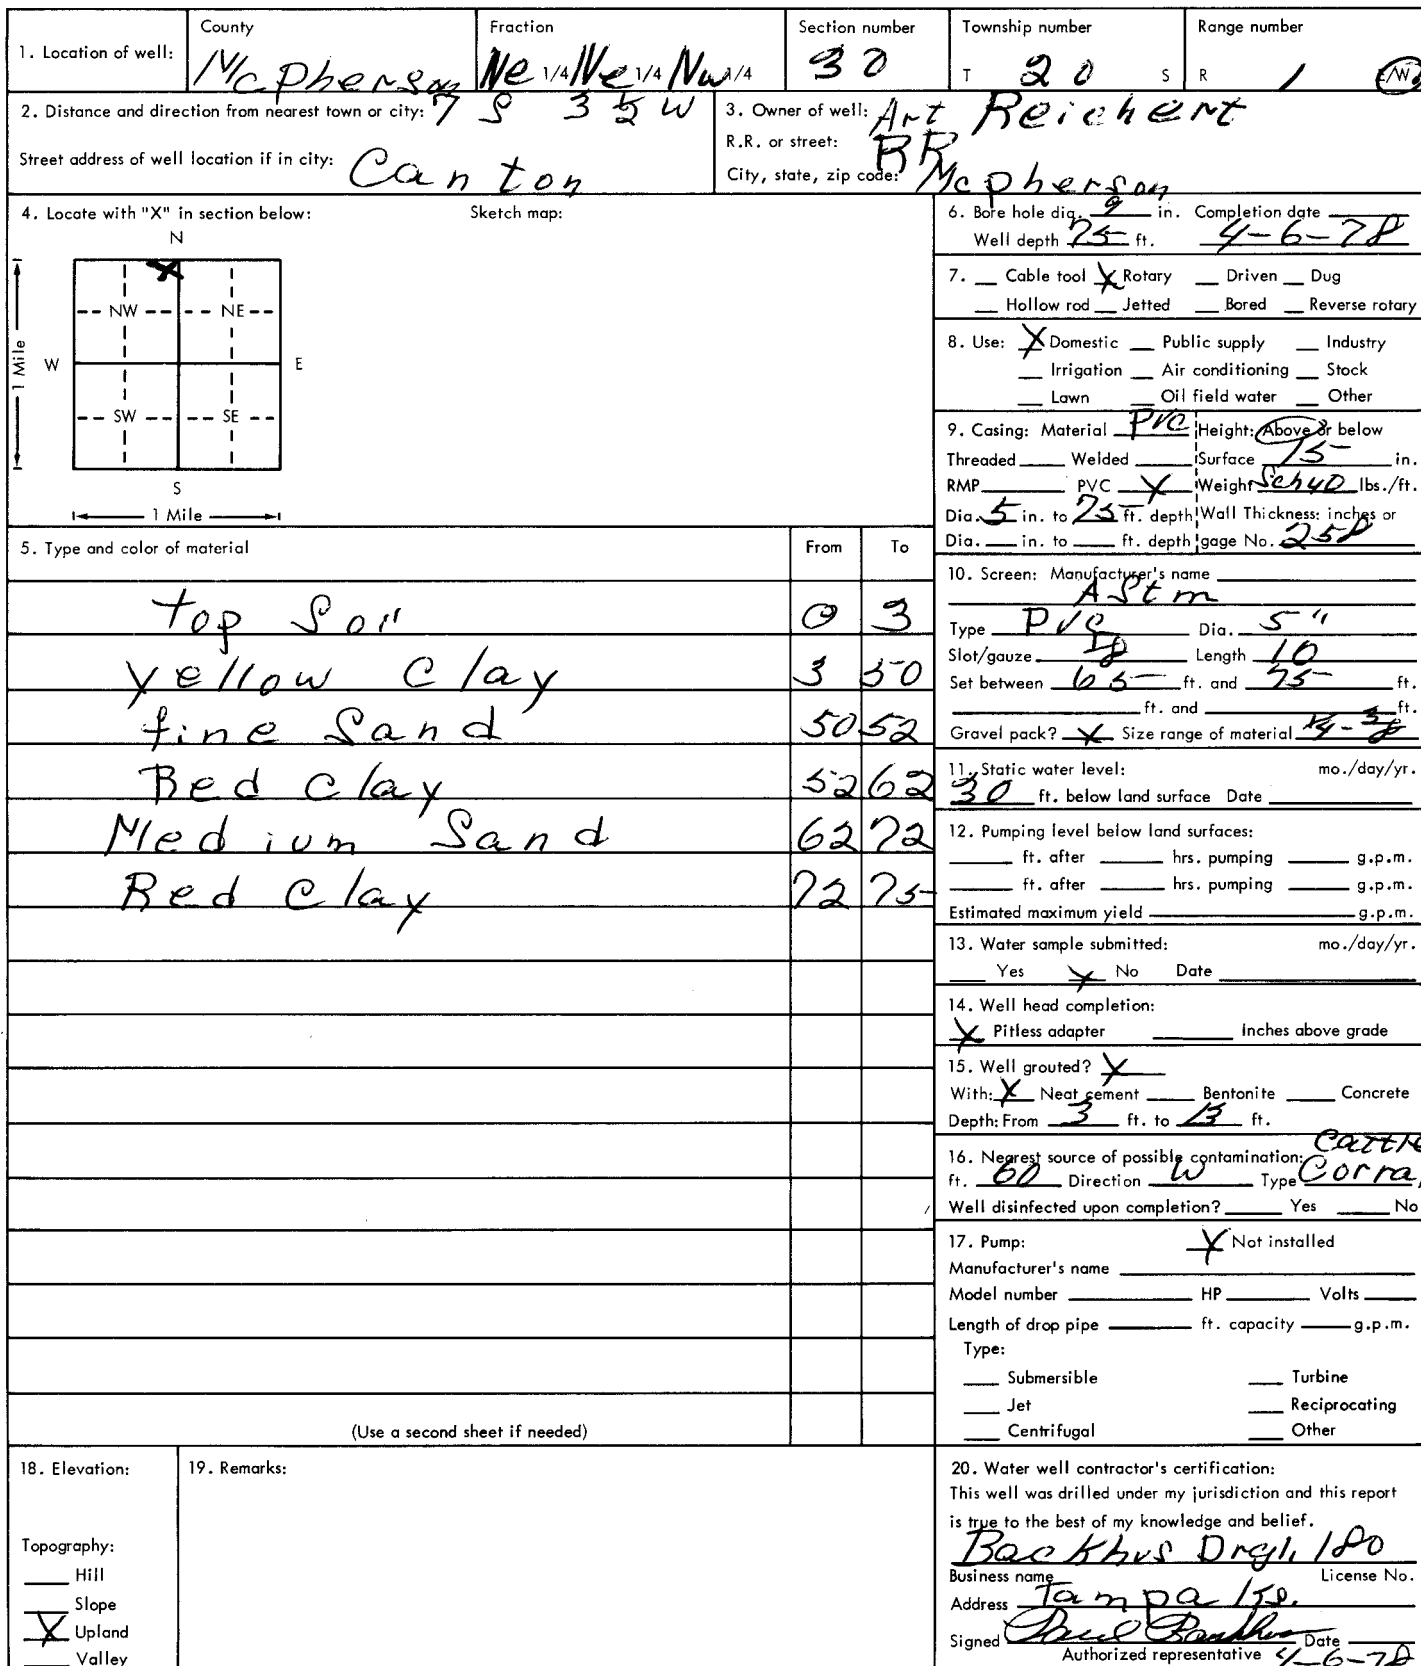 County Fraction Section number Township number Range number
1. Location of well: McPherson Ne 1/4 Ne 1/4 Nw 1/4 30 T 20 S R 1 E/W
2. Distance and direction from nearest town or city: 7 S 3 1/2 W
Street address of well location if in city: Canton
3. Owner of well: Art Reichert
R.R. or street: RR
City, state, zip code: McPherson
4. Locate with "X" in section below: Sketch map:
N
X
NW NE
W E
1 Mile
SW SE
S
1 Mile
5. Type and color of material From To
top Soil 0 3
yellow Clay 3 50
fine Sand 50 52
Red Clay 52 62
Medium Sand 62 72
Red Clay 72 75
(Use a second sheet if needed)
6. Bore hole dia. 9 in. Completion date
Well depth 75 ft. 4-6-78
7. Cable tool X Rotary Driven Dug
Hollow rod Jetted Bored Reverse rotary
8. Use: X Domestic Public supply Industry
Irrigation Air conditioning Stock
Lawn Oil field water Other
9. Casing: Material PVC Height: Above or below
Threaded Welded Surface 15 in.
RMP PVC X Weight Sch40 lbs./ft.
Dia. 5 in. to 75 ft. depth Wall Thickness: inches or
Dia. in. to ft. depth gage No. 258
10. Screen: Manufacturer's name
AStm
Type PVC Dia. 5"
Slot/gauze Length 10
Set between 65 ft. and 75 ft.
ft. and ft.
Gravel pack? X Size range of material 1/4-3/8
11. Static water level: mo./day/yr.
30 ft. below land surface Date
12. Pumping level below land surfaces:
ft. after hrs. pumping g.p.m.
ft. after hrs. pumping g.p.m.
Estimated maximum yield g.p.m.
13. Water sample submitted: mo./day/yr.
Yes X No Date
14. Well head completion:
X Pitless adapter Inches above grade
15. Well grouted? X
With: X Neat cement Bentonite Concrete
Depth: From 3 ft. to 13 ft.
16. Nearest source of possible contamination: Cattle
ft. 60 Direction W Type Corra
Well disinfected upon completion? Yes No
17. Pump: X Not installed
Manufacturer's name
Model number HP Volts
Length of drop pipe ft. capacity g.p.m.
Type:
Submersible Turbine
Jet Reciprocating
Centrifugal Other
18. Elevation:
Topography:
Hill
Slope
X Upland
Valley
19. Remarks:
20. Water well contractor's certification:
This well was drilled under my jurisdiction and this report
is true to the best of my knowledge and belief.
Backhus Drgl, 180
Business name License No.
Address Tampa Ks.
Signed Paul Backhus Date
Authorized representative 4-6-78